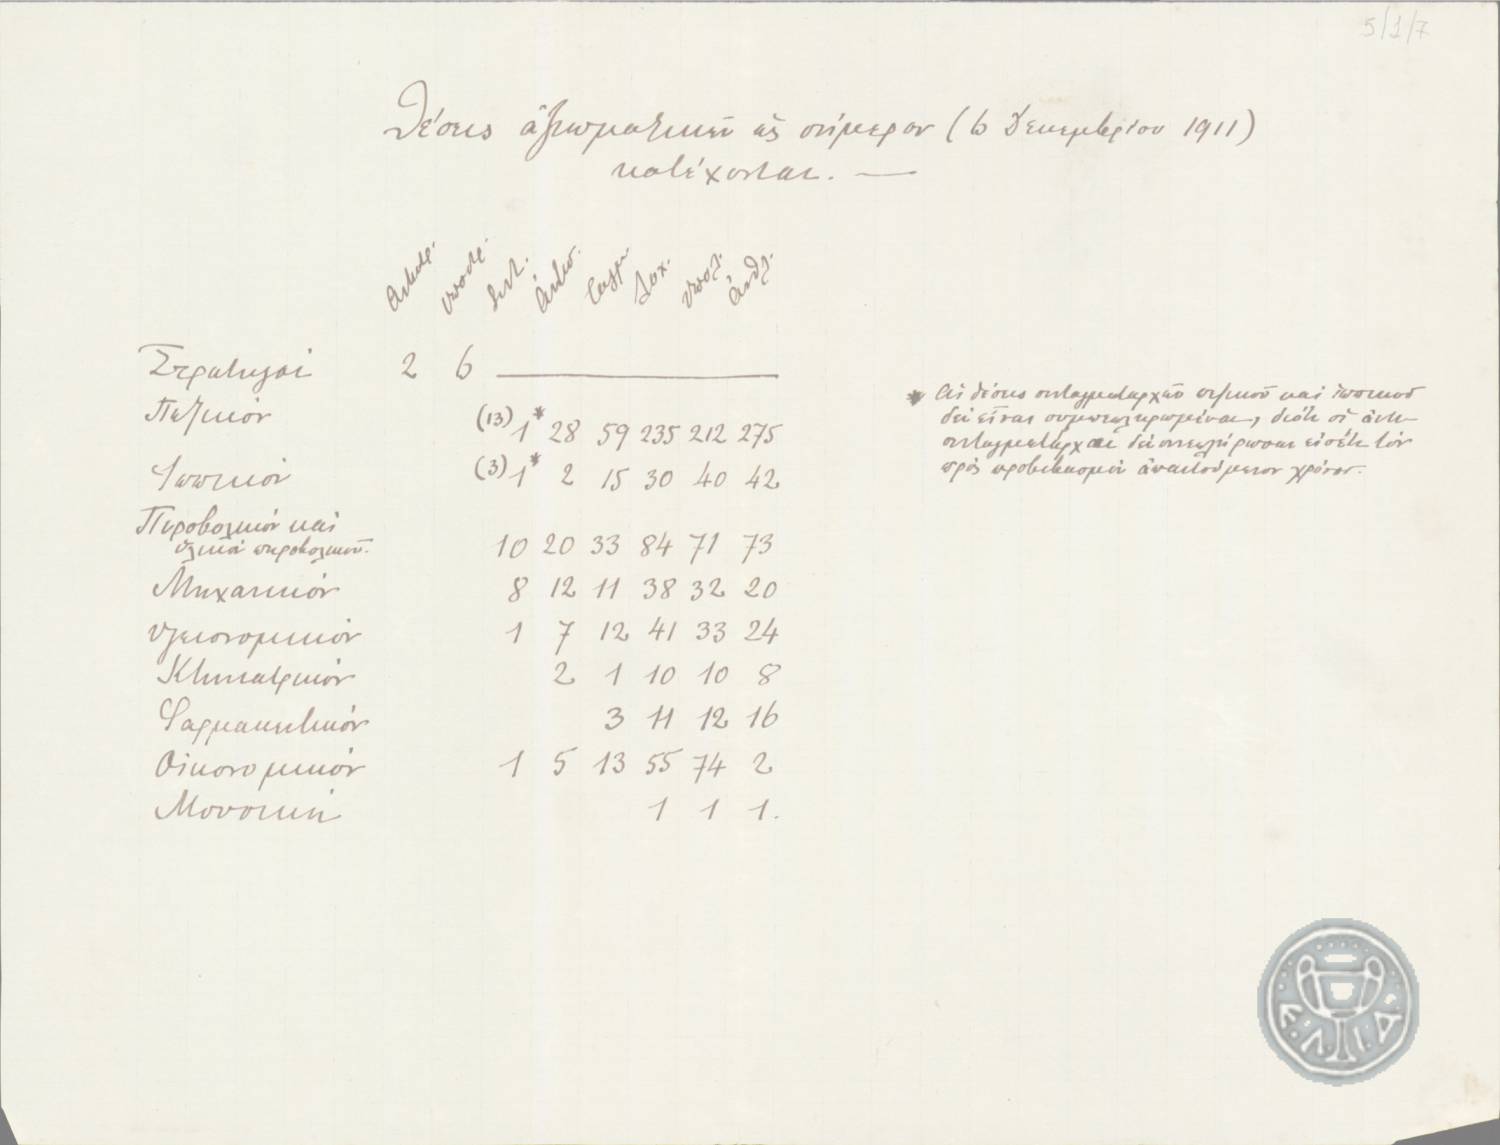 5/1/7
Θέσεις ἀξιωματικῶν ἃς σήμερον (6 Δεκεμβρίου 1911)
κατέχονται. —
Ἀντιστρ. ὑποστρ. Συντ. ἀντισ. ταγμ. λοχ. ὑπολ. ἀνθλ.
Στρατηγοί 2 6 ———
Πεζικόν (13) 1* 28 59 235 212 275
Ἱππικόν (3) 1* 2 15 30 40 42
Πυροβολικόν καί
ὑλικοῦ πυροβολικοῦ. 10 20 33 84 71 73
Μηχανικόν 8 12 11 38 32 20
Ὑγειονομικόν 1 7 12 41 33 24
Κτηνιατρικόν 2 1 10 10 8
Φαρμακευτικόν 3 11 12 16
Οἰκονομικόν 1 5 13 55 74 2
Μουσική 1 1 1.
* Αἱ θέσεις συνταγματαρχῶν πεζικοῦ καί ἱππικοῦ
δέν εἶναι συμπεπληρωμέναι, διότι οἱ ἀντι-
συνταγματάρχαι δέν συνεπλήρωσαν εἰσέτι τόν
πρός προβιβασμόν ἀπαιτούμενον χρόνον.
Ε.Λ.Ι.Α